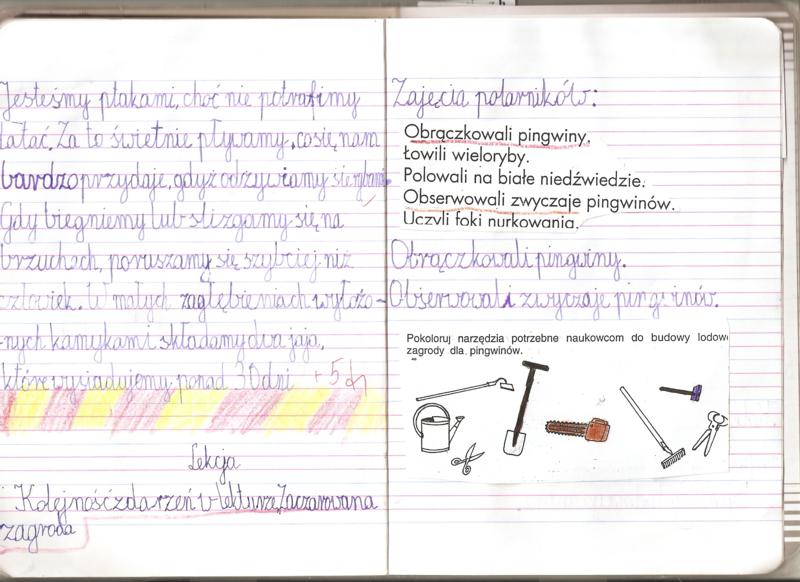 Jesteśmy ptakami, choć nie potrafimy
latać. Za to świetnie pływamy, co się nam
bardzo przydaje, gdyż odżywiamy się rybami.
Gdy biegniemy lub ślizgamy się na
brzuchach, poruszamy się szybciej niż
człowiek. W małych zagłębieniach wyłożo-
nych kamykami składamy dwa jaja,
które wysiadujemy ponad 30 dni +5
Lekcja
Kolejność zdarzeń w lekturze Zaczarowana
zagroda
Zajęcia polarników:
Obrączkowali pingwiny.
Łowili wieloryby.
Polowali na białe niedźwiedzie.
Obserwowali zwyczaje pingwinów.
Uczyli foki nurkowania.
Obrączkowali pingwiny.
Obserwowali zwyczaje pingwinów.
Pokoloruj narzędzia potrzebne naukowcom do budowy lodow
zagrody dla pingwinów.